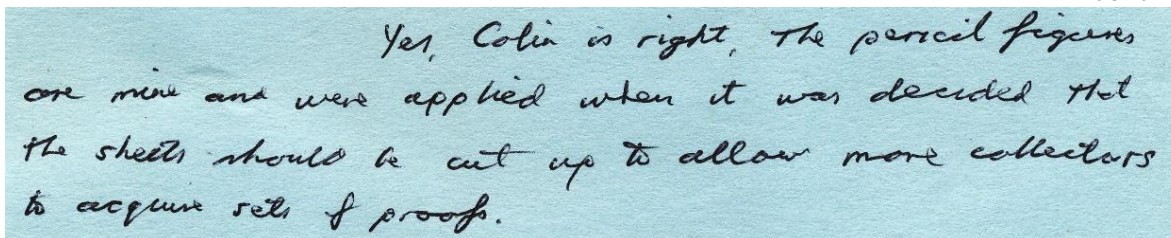 Yes, Colin is right, The pencil figures
are mine and were applied when it was decided that
the sheets should be cut up to allow more collectors
to acquire sets of proofs.